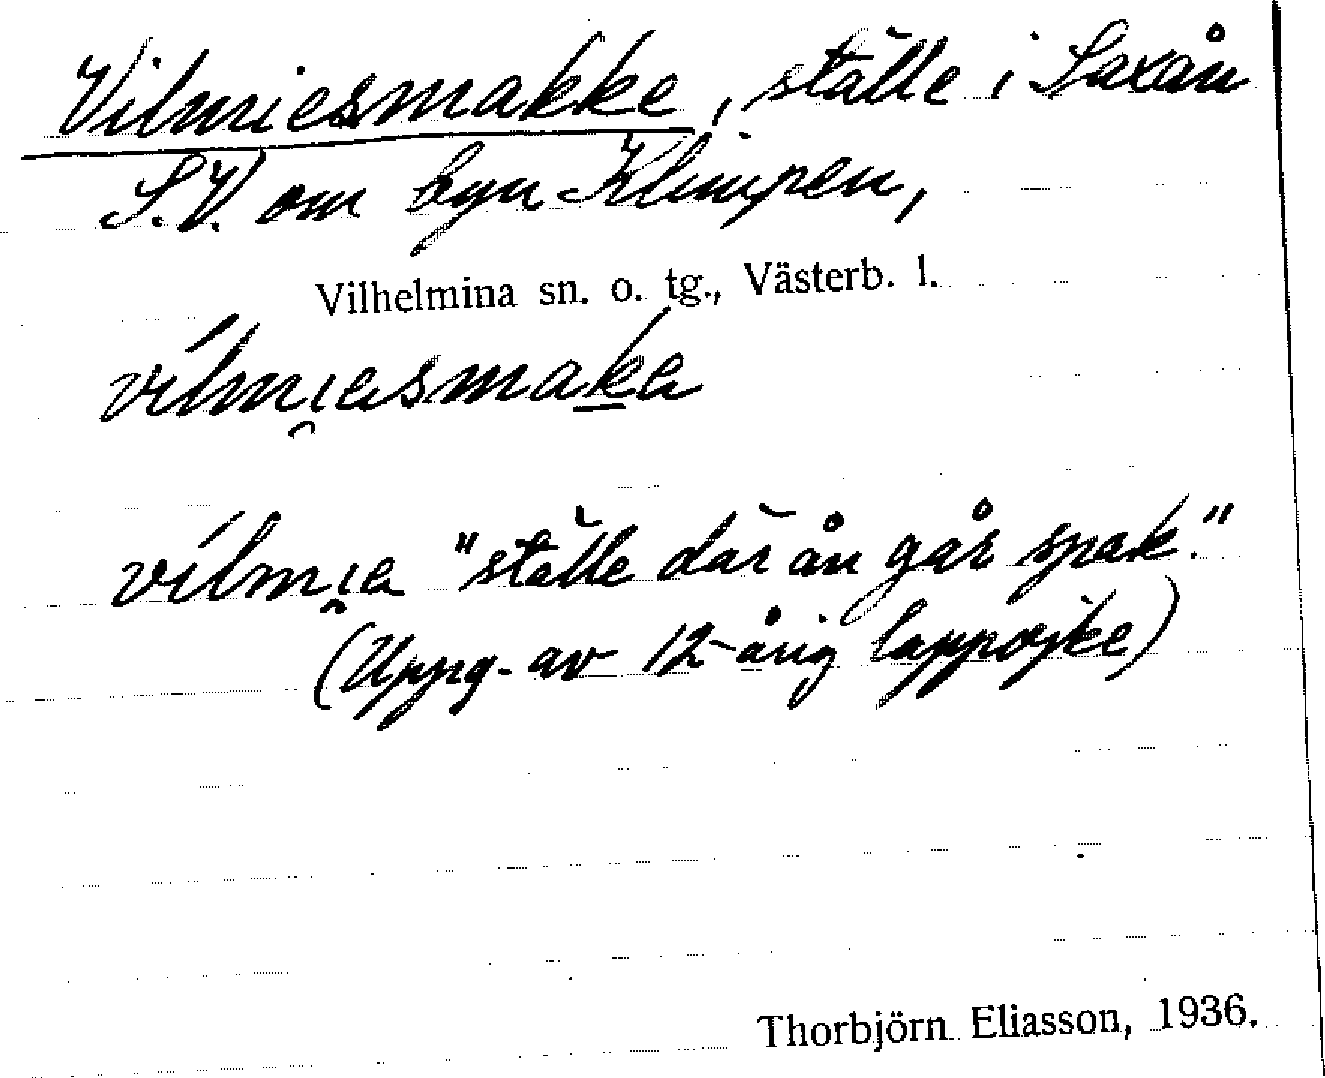 Vilmiesmakke, ställe i Saxån
S.V. om byn Klimpen,
Vilhelmina sn. o. tg., Västerb. l.
vílmi̯esmaḵe
vílmi̯e "ställe där ån går spak."
(Uppg. av 12-årig lappojke)
Thorbjörn Eliasson, 1936.